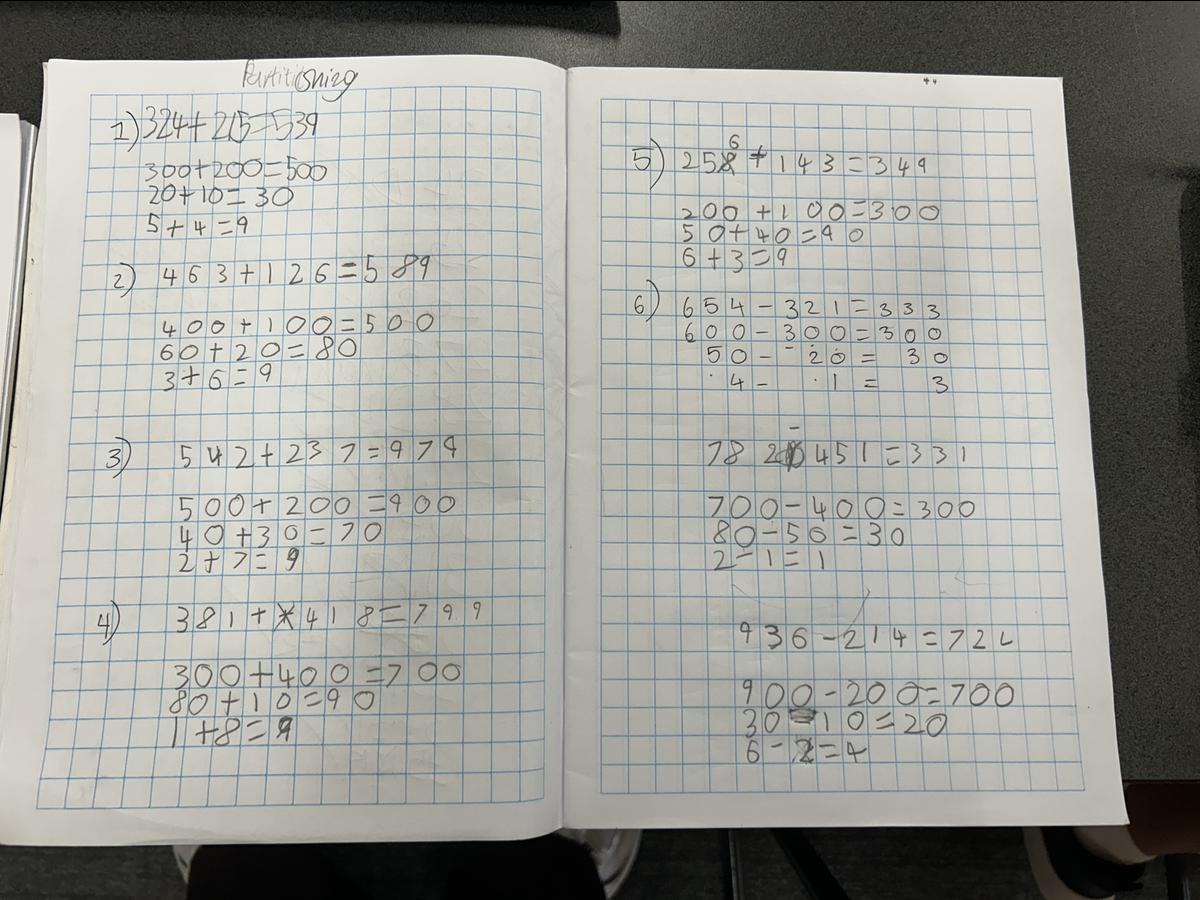 Partitioning
1) 324+215=539
300+200=500
20+10=30
5+4=9
2) 463+126=589
400+100=500
60+20=80
3+6=9
3) 542+237=979
500+200=900
40+30=70
2+7=9
4) 381+418=799
300+400=700
80+10=90
1+8=9
5) 256+143=349
200+100=300
50+40=90
6+3=9
6) 654-321=333
600-300=300
50-20=30
4-1=3
782-451=331
700-400=300
80-50=30
2-1=1
936-214=72
900-200=700
30-10=20
6-2=4